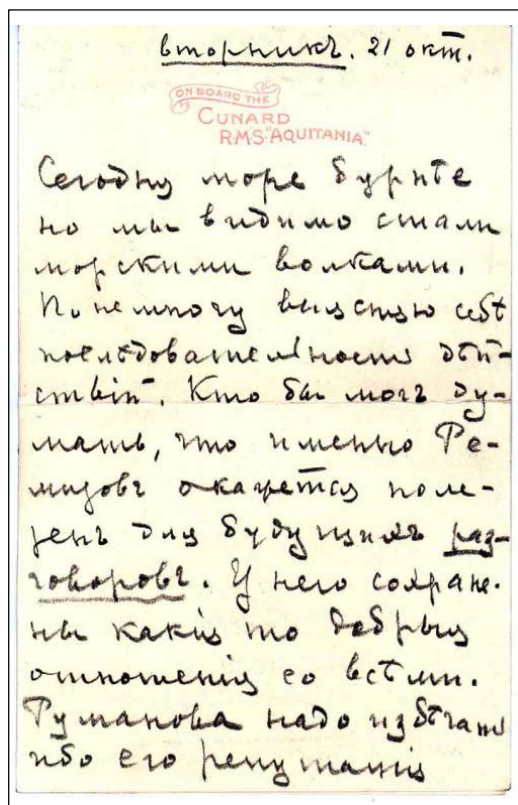 вторникъ. 21 окт.
ON BOARD THE
CUNARD
R.M.S. "AQUITANIA"
Сегодня море бурное
но мы видимо стали
морскими волками.
Понемногу выясняю себѣ
послѣдовательность дѣй-
ствій. Кто бы могъ ду-
мать, что именно Ре-
мизовъ окажется поле-
зенъ для будущихъ раз-
говоровъ. У него сохране-
ны какія то добрыя
отношенія со всѣми.
Руманова надо избѣгать
ибо его репутація